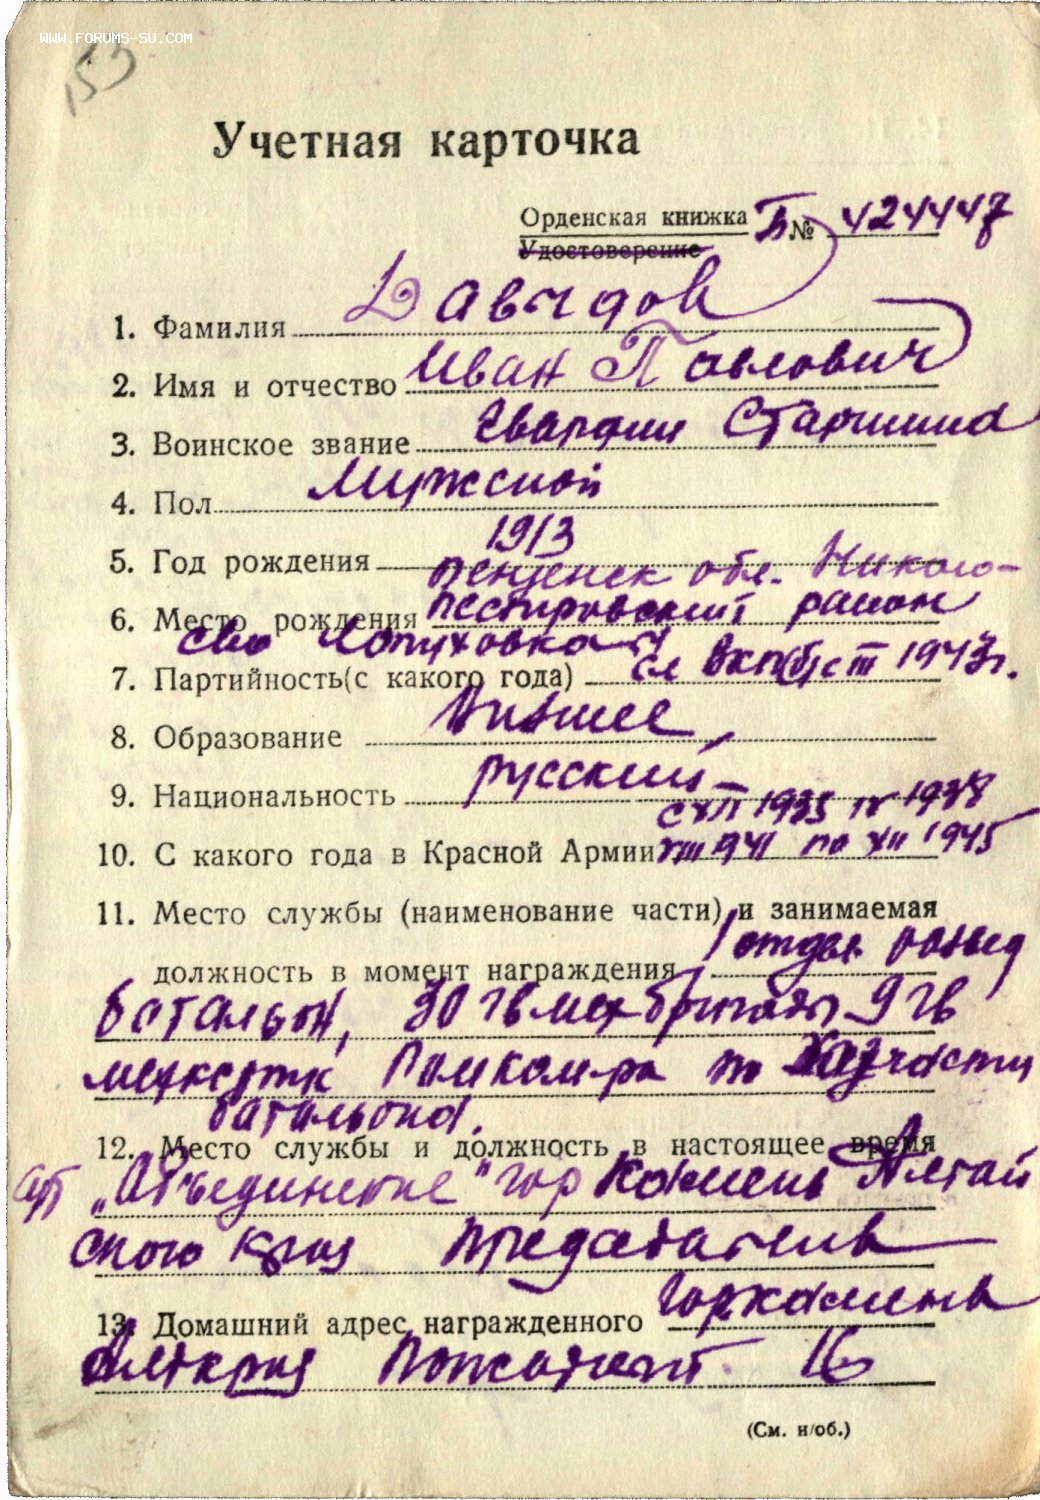 WWW.FORUMS-SU.COM
153
Учетная карточка
Орденская книжка Б № 424447
Удостоверение
1. Фамилия Давыдов
2. Имя и отчество Иван Павлович
3. Воинское звание Гвардии Старшина
4. Пол Мужской
5. Год рождения 1913
Пензенск обл. Николо-
6. Место рождения пестровский район
село Лопуховка
7. Партийность (с какого года) с 1943г.
8. Образование Низшее
9. Национальность русский
с XII 1935 IV 1938
10. С какого года в Красной Армии VIII 1941 по XII 1945
11. Место службы (наименование части) и занимаемая
должность в момент награждения 1 отдел. развед
батальон, 30 гв мехбригады 9 гв
мехкорпус Помком-ра по хозчасти
батальона.
12. Место службы и должность в настоящее время
"Объединение" гор Камень Алтай
ского края председатель
13. Домашний адрес награжденного гор Камень
Алткрая 16
(См. н/об.)